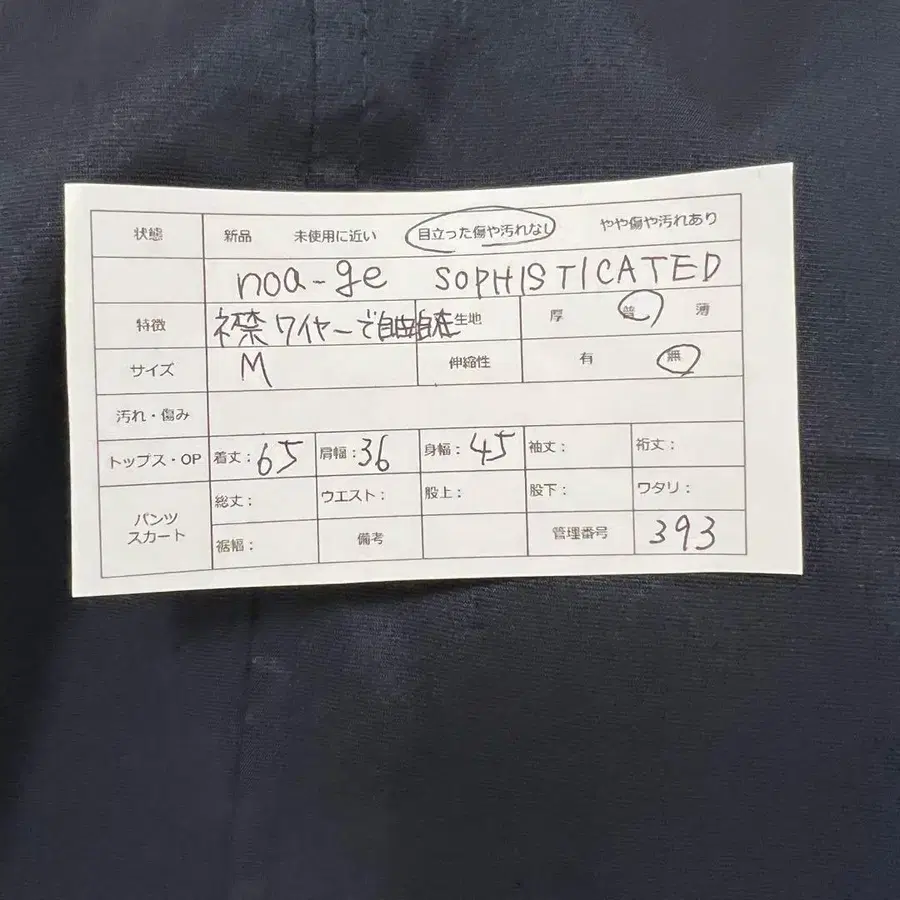 状態 新品 未使用に近い 目立った傷や汚れない やや傷や汚れあり
noa-ge SOPHISTICATED
特徴 襟 ワイヤーで自由自在 生地 厚 普 薄
サイズ M 伸縮性 有 無
汚れ・傷み
トップス・OP 着丈:65 肩幅:36 身幅:45 袖丈: 裄丈:
パンツ スカート 総丈: ウエスト: 股上: 股下: ワタリ:
裾幅: 備考 管理番号 393